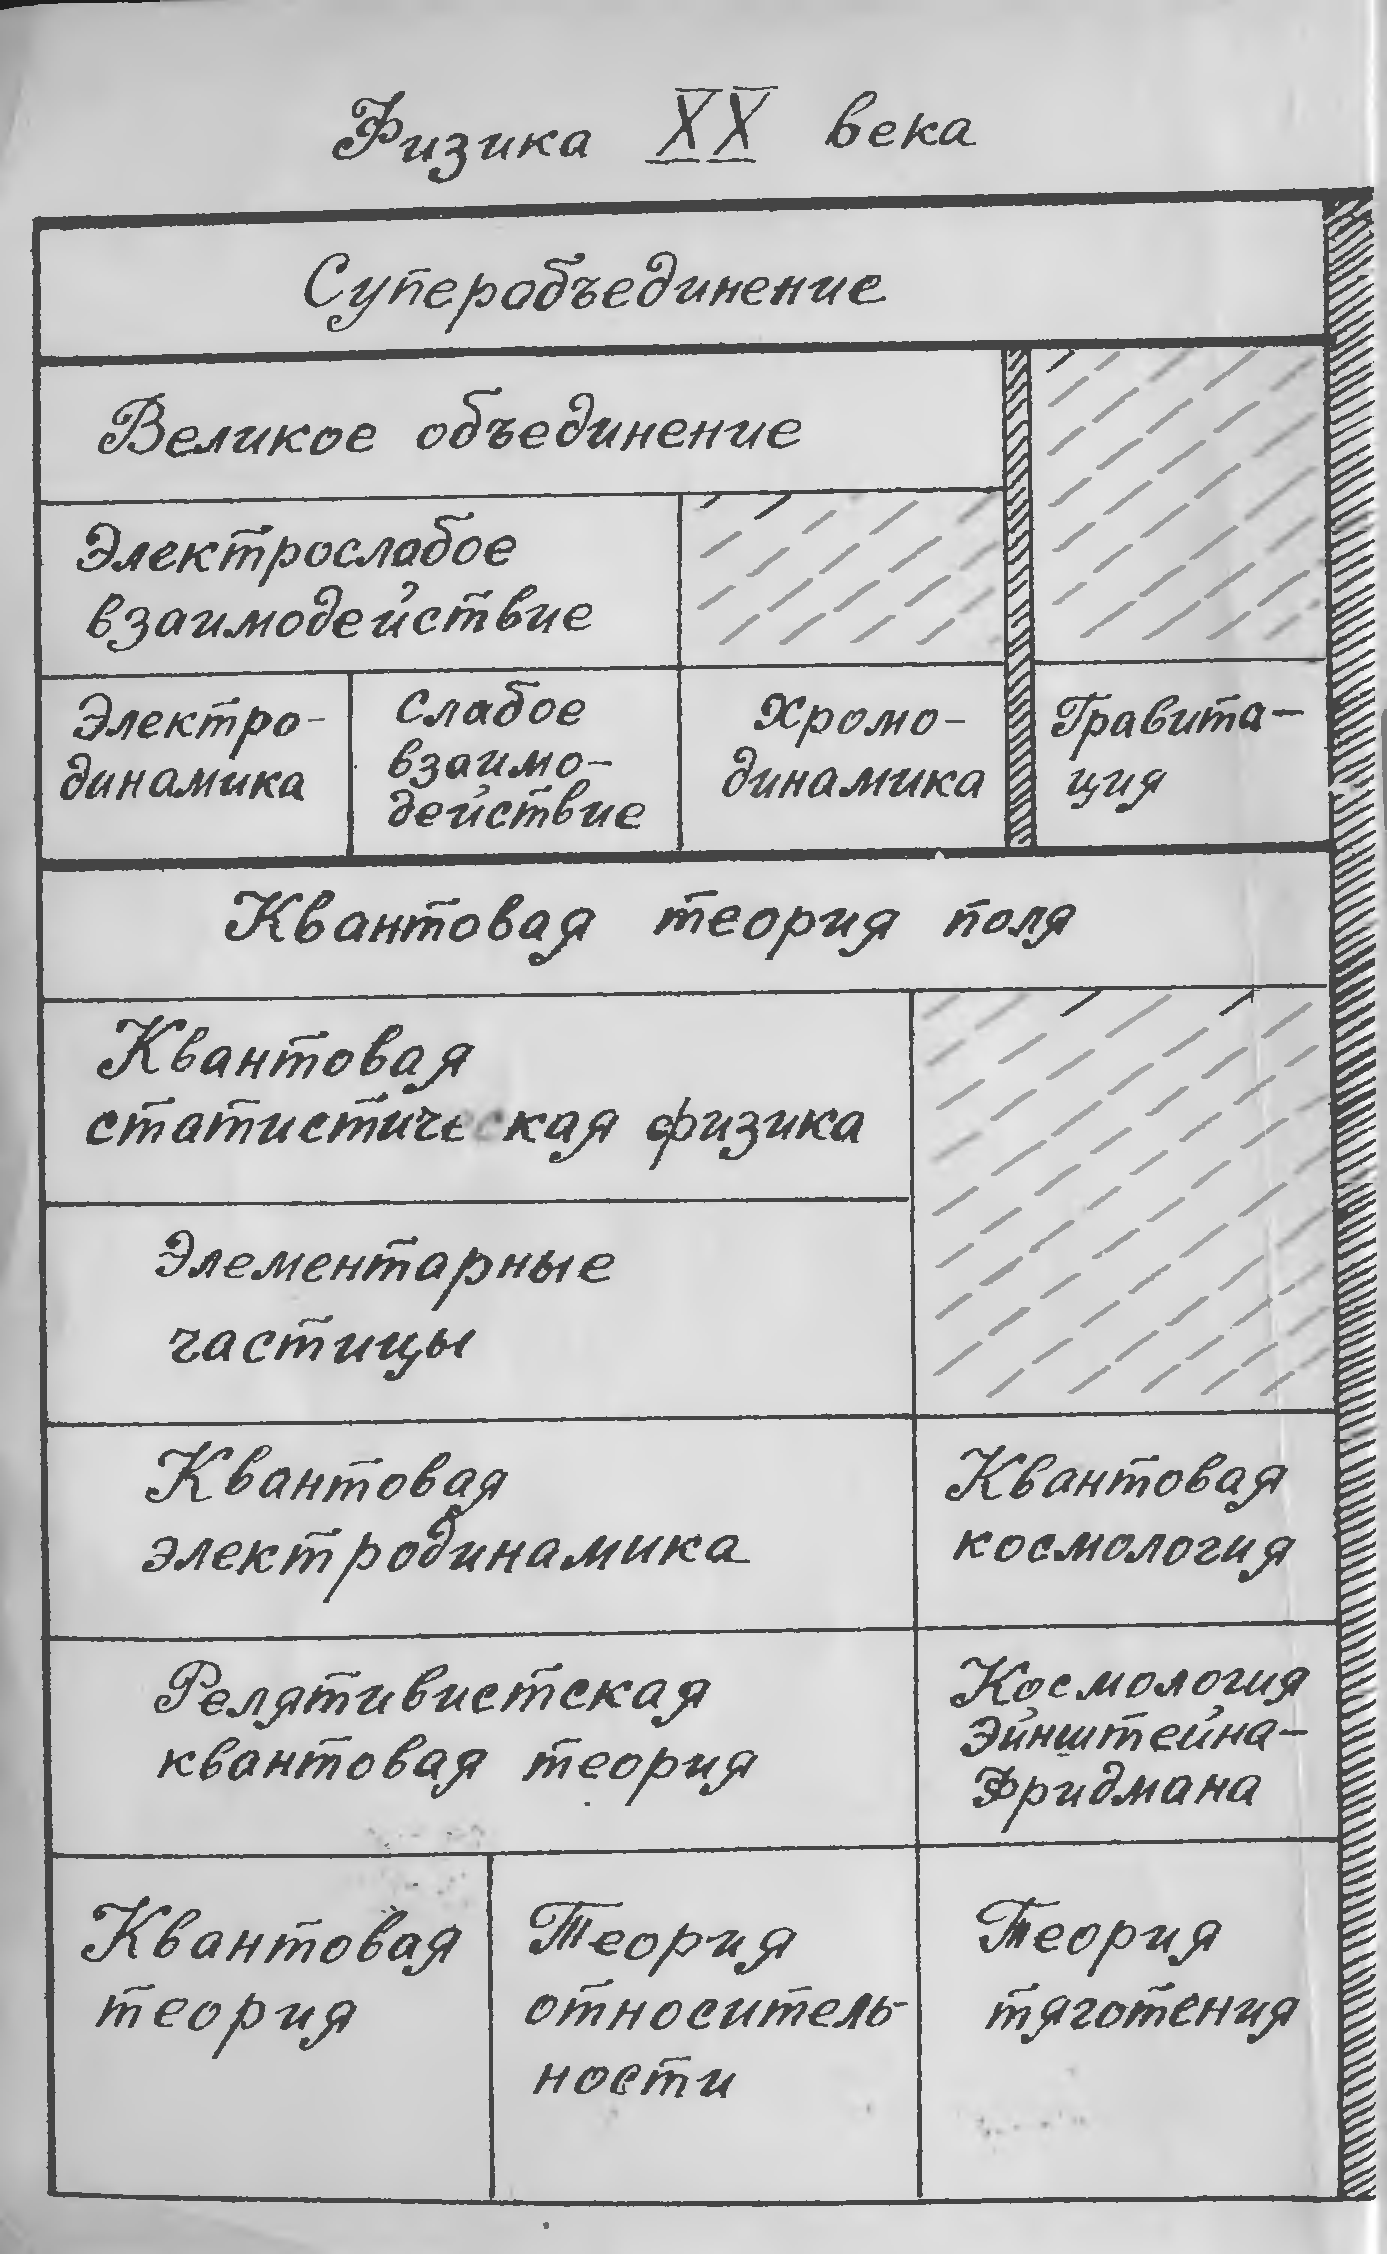 Физика XX века
Суперобъединение
Великое объединение
Электрослабое
взаимодействие
Электро-
динамика
Слабое
взаимо-
действие
Хромо-
динамика
Гравита-
ция
Квантовая теория поля
Квантовая
статистическая физика
Элементарные
частицы
Квантовая
электродинамика
Квантовая
космология
Релятивистская
квантовая теория
Космология
Эйнштейна-
Фридмана
Квантовая
теория
Теория
относитель-
ности
Теория
тяготения